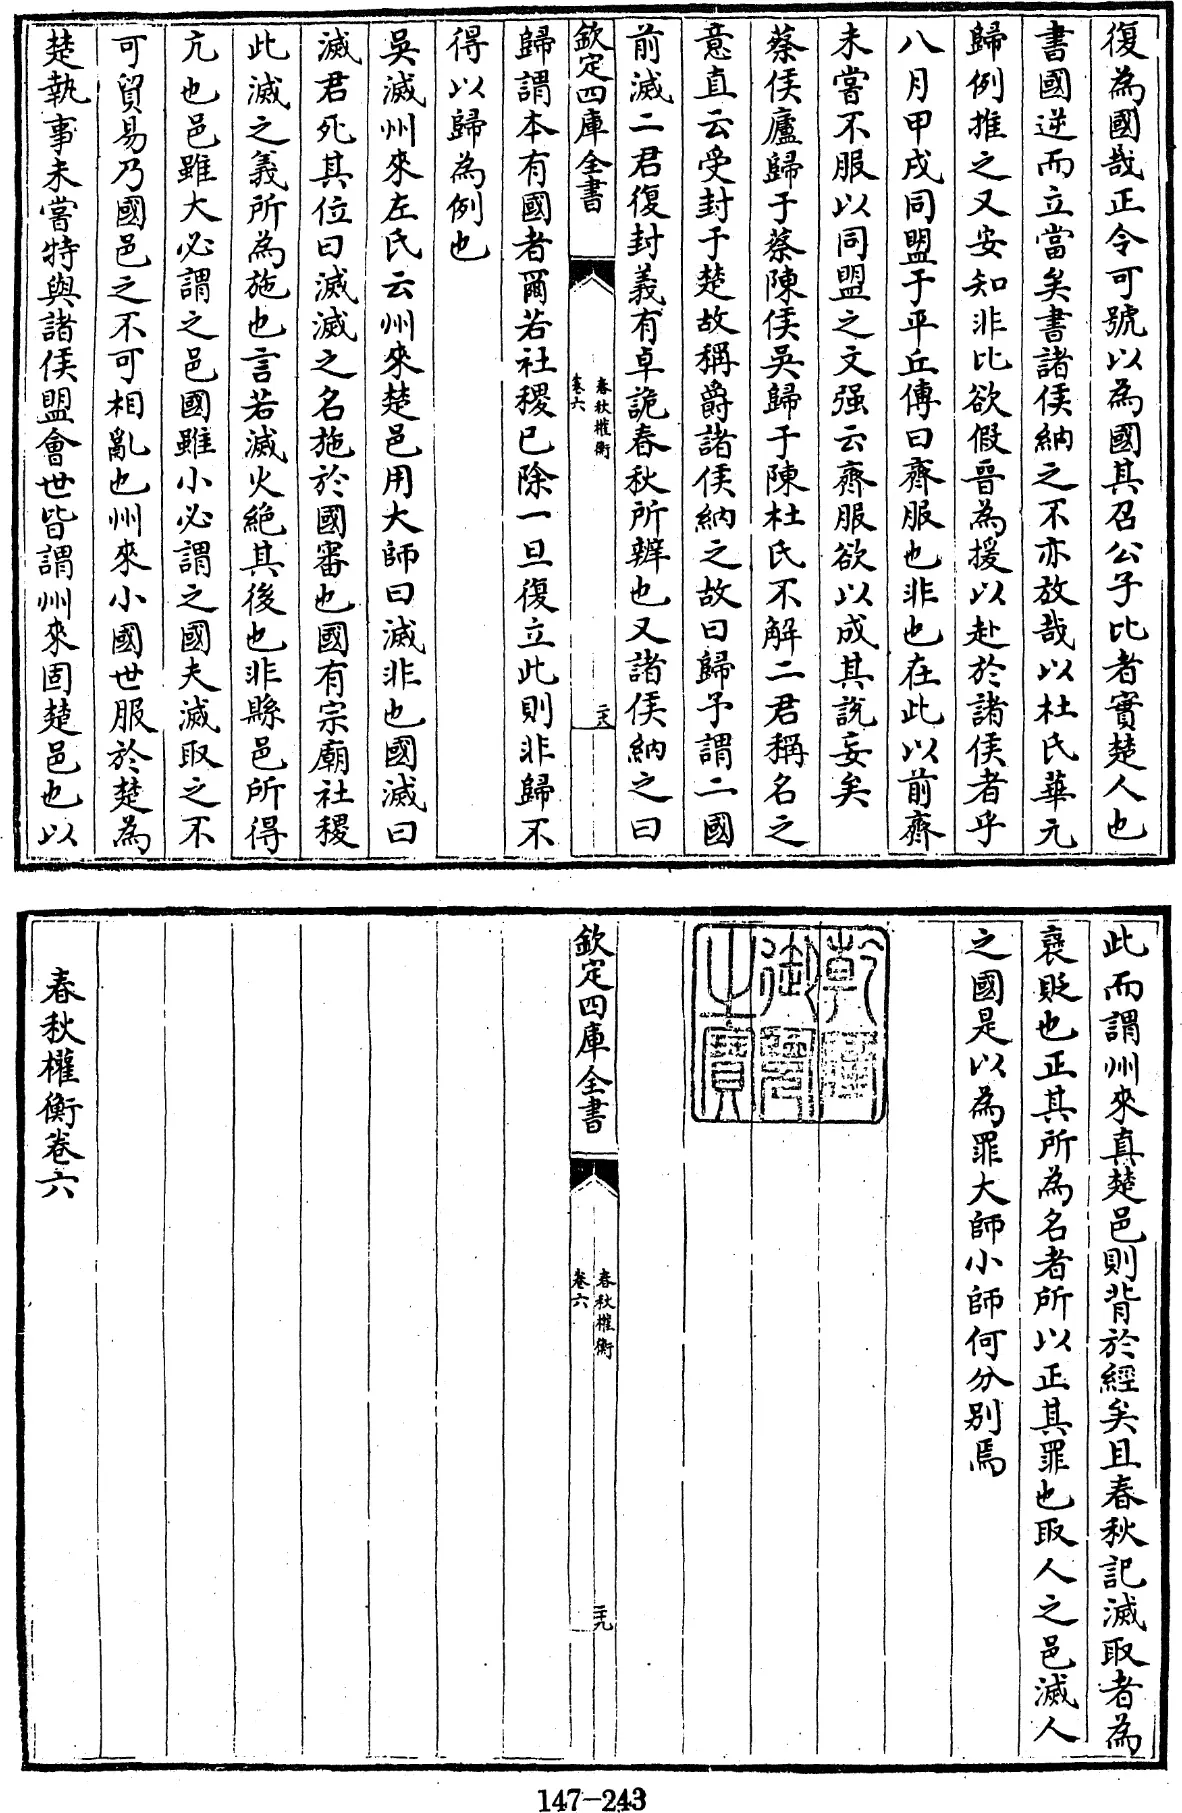 復為國哉正令可號以為國其召公子比者實楚人也
書國逆而立當矣書諸侯納之不亦放哉以杜氏華元
歸例推之又安知非比欲假晉為援以赴於諸侯者乎
八月甲戌同盟于平丘傳曰齊服也非也在此以前齊
未嘗不服以同盟之文强云齊服欲以成其說妄矣
蔡侯廬歸于蔡陳侯吳歸于陳杜氏不解二君稱名之
意直云受封于楚故稱爵諸侯納之故曰歸予謂二國
前滅二君復封義有卓詭春秋所辨也又諸侯納之曰
欽定四庫全書
春秋權衡
卷六
二十八
歸謂本有國者爾若社稷已除一旦復立此則非歸不
得以歸為例也
吳滅州來左氏云州來楚邑用大師曰滅非也國滅曰
滅君死其位曰滅滅之名施於國審也國有宗廟社稷
此滅之義所為施也言若滅火絶其後也非縣邑所得
亢也邑雖大必謂之邑國雖小必謂之國夫滅取之不
可貿易乃國邑之不可相亂也州來小國世服於楚為
楚執事未嘗特與諸侯盟會世皆謂州來固楚邑也以
此而謂州來真楚邑則背於經矣且春秋記滅取者為
襃貶也正其所為名者所以正其罪也取人之邑滅人
之國是以為罪大師小師何分别焉
乾隆
御覽
之寳
欽定四庫全書
春秋權衡
卷六
二十九
春秋權衡卷六
147-243